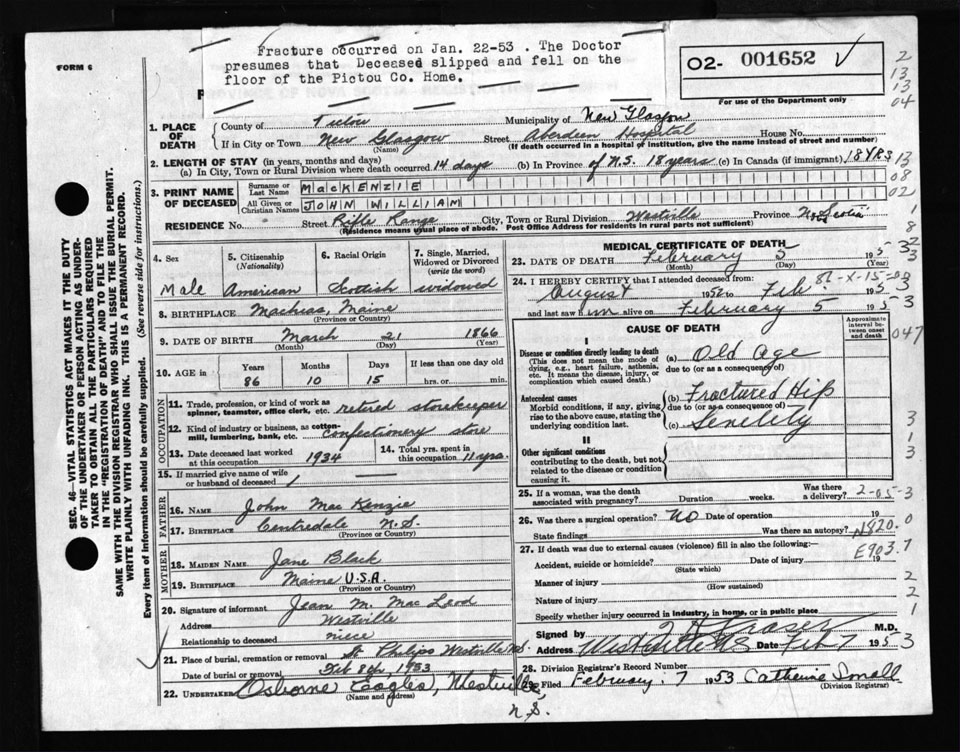 Fracture occurred on Jan. 22-53 . The Doctor
presumes that Deceased slipped and fell on the
floor of the Pictou Co. Home.
FORM 6
O2- 001652
For use of the Department only
2
13
13
04
SEC. 46—VITAL STATISTICS ACT MAKES IT THE DUTY
OF THE UNDERTAKER OR PERSON ACTING AS UNDER-
TAKER TO OBTAIN ALL THE PARTICULARS REQUIRED
IN THE "REGISTRATION OF DEATH" AND TO FILE THE
SAME WITH THE DIVISION REGISTRAR WHO SHALL ISSUE THE BURIAL PERMIT.
WRITE PLAINLY WITH UNFADING INK. THIS IS A PERMANENT RECORD.
Every item of information should be carefully supplied. (See reverse side for instructions.)
1. PLACE OF DEATH County of Pictou Municipality of New Glasgow
If in City or Town New Glasgow (Name) Street Aberdeen Hospital House No.
(If death occurred in a hospital or institution, give the name instead of street and number)
2. LENGTH OF STAY (in years, months and days)
(a) In City, Town or Rural Division where death occurred 14 days (b) In Province of N.S. 18 years (c) In Canada (if immigrant) 18 YRS
13
08
02
3. PRINT NAME OF DECEASED Surname or Last Name MACKENZIE
All Given or Christian Names JOHN WILLIAM
RESIDENCE No. Street Rifle Range City, Town or Rural Division Westville Province N. Scotia
(Residence means usual place of abode. Post Office Address for residents in rural parts not sufficient)
4. Sex Male
5. Citizenship (Nationality) American
6. Racial Origin Scottish
7. Single, Married, Widowed or Divorced (write the word) widowed
8. BIRTHPLACE Machias, Maine
(Province or Country)
9. DATE OF BIRTH March 21 1866
(Month) (Day) (Year)
10. AGE in Years Months Days If less than one day old
86 10 15 hrs. or min.
OCCUPATION
11. Trade, profession, or kind of work as spinner, teamster, office clerk, etc. retired storekeeper
12. Kind of industry or business, as cotton-mill, lumbering, bank, etc. Confectionery store
13. Date deceased last worked at this occupation 1934
14. Total yrs. spent in this occupation 11 yrs.
15. If married give name of wife or husband of deceased
FATHER
16. Name John Mac Kenzie
17. Birthplace Centredale N.S.
(Province or Country)
MOTHER
18. MAIDEN NAME Jane Black
19. BIRTHPLACE Maine U.S.A.
(Province or Country)
20. Signature of informant Jean M. Mac Leod
Address Westville
Relationship to deceased niece
21. Place of burial, cremation or removal St Philips Westville N.S.
Date of burial or removal Feb 8th, 1953
22. UNDERTAKER Osborne Eagles, Westville, N.S.
(Name and address)
MEDICAL CERTIFICATE OF DEATH
23. DATE OF DEATH February 5 1953
(Month) (Day) (Year)
24. I HEREBY CERTIFY that I attended deceased from:
86-X-15-0
August 1952 to Feb. 1953
and last saw him alive on February 5 1953
CAUSE OF DEATH
Approximate interval between onset and death
047
I
Disease or condition directly leading to death
(This does not mean the mode of dying, e.g., heart failure, asthenia, etc. It means the disease, injury, or complication which caused death.)
(a) Old Age
due to (or as a consequence of)
Antecedent causes
Morbid conditions, if any, giving rise to the above cause, stating the underlying condition last.
(b) Fractured Hip
due to (or as a consequence of)
(c) Senility
II
Other significant conditions
contributing to the death, but not related to the disease or condition causing it.
3
1
3
25. If a woman, was the death associated with pregnancy? Duration weeks. Was there a delivery? 2-05-3
26. Was there a surgical operation? No Date of operation 19
State findings Was there an autopsy? N820.0
27. If death was due to external causes (violence) fill in also the following: E903.7
Accident, suicide or homicide? Date of injury 19
(State which)
Manner of injury
(How sustained)
Nature of injury
Specify whether injury occurred in industry, in home, or in public place
2
2
1
Signed by Fraser M.D.
Address Westville NS Date Feb 7 1953
28. Division Registrar's Record Number
29. Filed February 7 1953 Catherine Small
(Division Registrar)